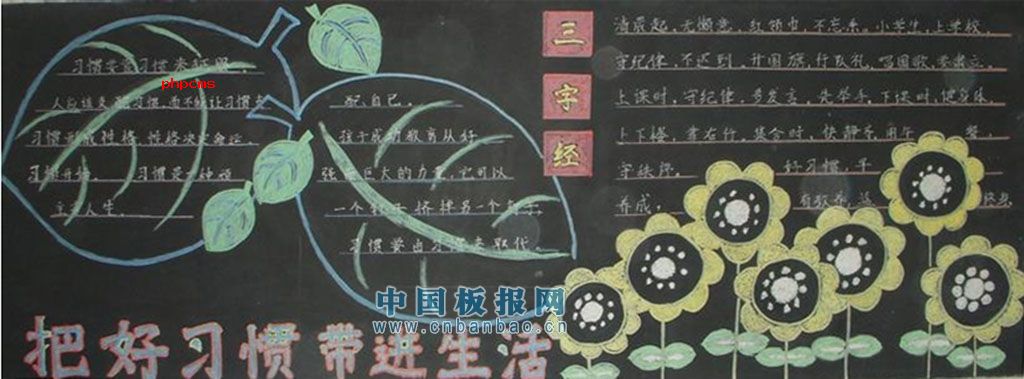 习惯要由习惯来征服。
phpcms
人应该支配习惯，而不能让习惯支
配自己。
习惯形成性格，性格决定命运。
孩子成功教育从好
习惯开始。
习惯是一种顽
强而巨大的力量，它可以
主宰人生。
一个钉子挤掉另一个钉子，
习惯要由习惯来取代。
三字经
清晨起，无懒意，红领巾，不忘系。小学生，上学校，
守纪律，不迟到，升国旗，行队礼，唱国歌，要肃立。
上课时，守纪律，多发言，先举手，下课时，健身体，
上下楼，靠右行，集合时，快静齐，用午餐，
守秩序。
好习惯，早
养成。
有教养，益
终身
中国板报网
www.cnbanbao.cn
把好习惯带进生活